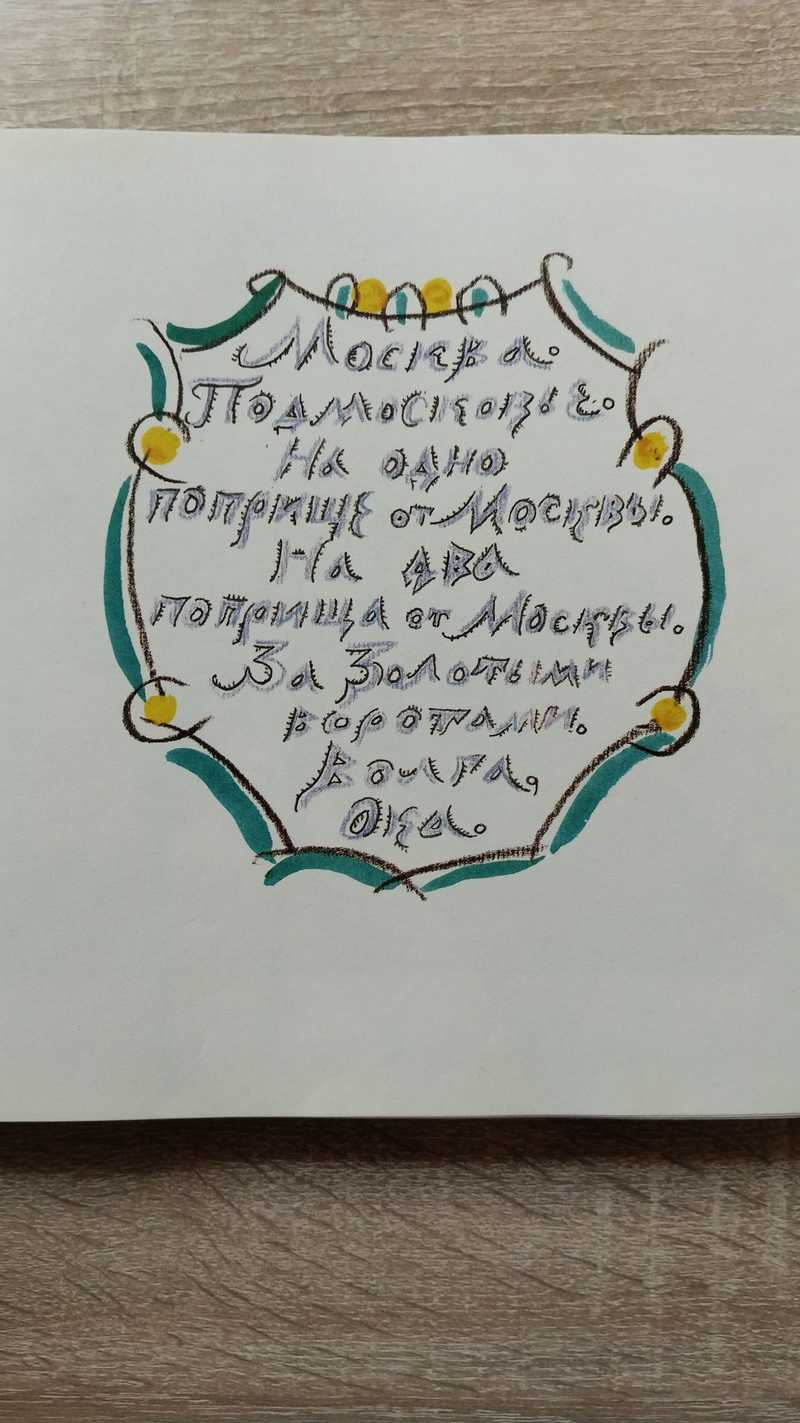 Москва.
Подмосковье.
На одно
поприще от Москвы.
На два
поприща от Москвы.
За Золотыми
воротами.
Волга,
Ока.